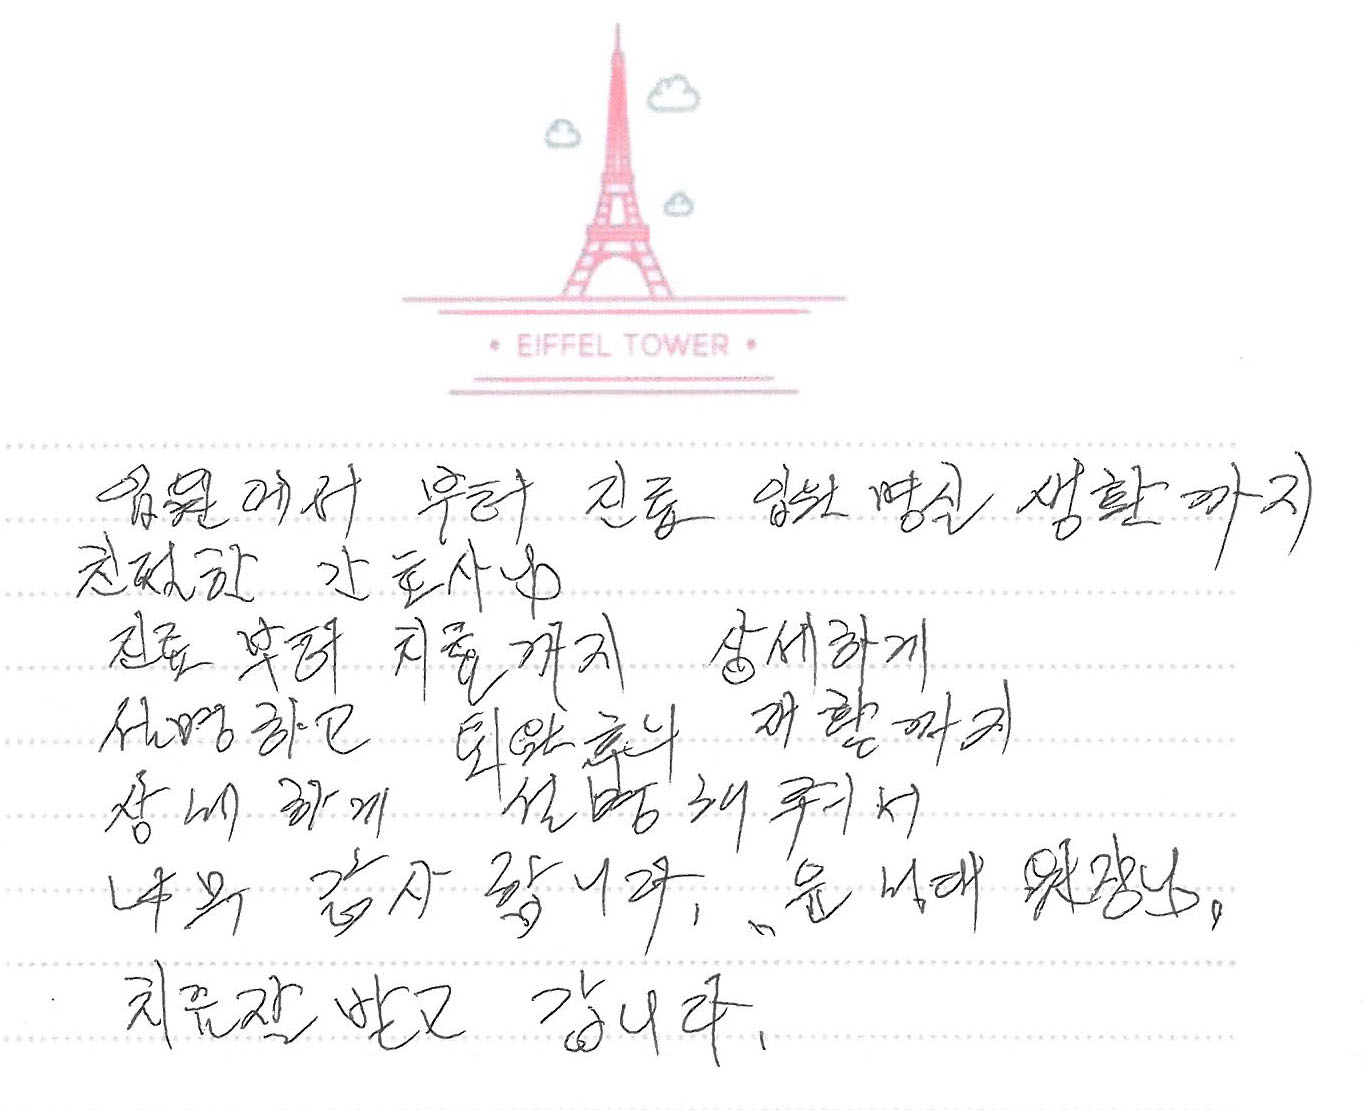 • EIFFEL TOWER •
입원에서 부터 진료 입원 병실 생활까지
친절한 간호사님
진료 부터 치료까지 상세하게
설명하고 퇴원후의 재활까지
상세하게 설명해주셔서
너무 감사합니다. 윤 원장님.
치료잘 받고 갑니다.